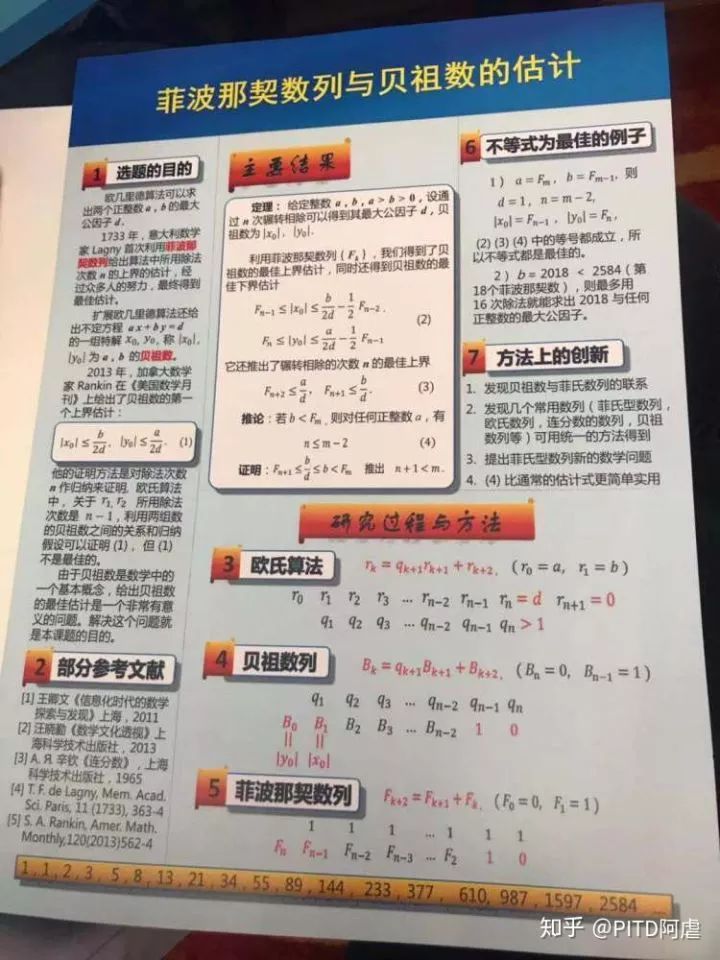 菲波那契数列与贝祖数的估计
1 选题的目的
欧几里德算法可以求
出两个正整数 a , b 的最大
公因子 d .
1733 年，意大利数学
家 Lagny 首次利用菲波那
契数列给出算法中所用除法
次数 n 的上界的估计，经
过众多人的努力，最终得到
最佳估计。
扩展欧几里德算法还给
出不定方程 ax + by = d
的一组特解 x₀, y₀, 称 |x₀|,
|y₀| 为 a , b 的贝祖数。
2013 年，加拿大数学
家 Rankin 在《美国数学月
刊》上给出了贝祖数的第一
个上界估计：
|x₀| ≤ b/2d, |y₀| ≤ a/2d. (1)
他的证明方法是对除法次数
n 作归纳来证明. 欧氏算法
中，关于 r₁, r₂ 所用除法
次数是 n − 1，利用两组数
的贝祖数之间的关系和归纳
假设可以证明 (1). 但 (1)
不是最佳的。
由于贝祖数是数学中的
一个基本概念，给出贝祖数
的最佳估计是一个非常有意
义的问题。解决这个问题就
是本课题的目的。
2 部分参考文献
[1] 王卿文《信息化时代的数学
探索与发现》上海，2011
[2] 汪晓勤《数学文化透视》上
海科学技术出版社，2013
[3] А. Я. 辛钦《连分数》，上海
科学技术出版社，1965
[4] T. F. de Lagny, Mem. Acad.
Sci. Paris, 11 (1733), 363-4
[5] S. A. Rankin, Amer. Math.
Monthly,120(2013)562-4
主要结果
定理：给定整数 a , b , a > b > 0 , 设通
过 n 次辗转相除可以得到其最大公因子 d，贝
祖数为 |x₀|，|y₀|.
利用菲波那契数列 {Fₖ}，我们得到了贝
祖数的最佳上界估计，同时还得到贝祖数的最
佳下界估计
Fₙ₋₁ ≤ |x₀| ≤ b/2d − 1/2 Fₙ₋₂ .
Fₙ ≤ |y₀| ≤ a/2d − 1/2 Fₙ₋₁ (2)
它还推出了辗转相除的次数 n 的最佳上界
Fₙ₊₂ ≤ a/d, Fₙ₊₁ ≤ b/d. (3)
推论：若 b < Fₘ , 则对任何正整数 a，有
n ≤ m − 2 (4)
证明：Fₙ₊₁ ≤ b/d ≤ b < Fₘ 推出 n + 1 < m .
6 不等式为最佳的例子
1 ) a = Fₘ , b = Fₘ₋₁, 则
d = 1 , n = m − 2,
|x₀| = Fₙ₋₁ , |y₀| = Fₙ ,
(2) (3) (4) 中的等号都成立，所
以不等式都是最佳的。
2 ) b = 2018 < 2584 ( 第
18个菲波那契数 )，则最多用
16 次除法就能求出 2018 与任何
正整数的最大公因子。
7 方法上的创新
1. 发现贝祖数与菲氏数列的联系
2. 发现几个常用数列 ( 菲氏型数列，
欧氏数列，连分数的数列，贝祖
数列等 ) 可用统一的方法得到
3. 提出菲氏型数列新的数学问题
4. (4) 比通常的估计式更简单实用
研究过程与方法
3 欧氏算法 rₖ = qₖ₊₁rₖ₊₁ + rₖ₊₂ , ( r₀ = a, r₁ = b )
r₀ r₁ r₂ r₃ ... rₙ₋₂ rₙ₋₁ rₙ = d rₙ₊₁ = 0
q₁ q₂ q₃ ... qₙ₋₂ qₙ₋₁ qₙ > 1
4 贝祖数列 Bₖ = qₖ₊₁Bₖ₊₁ + Bₖ₊₂ , ( Bₙ = 0, Bₙ₋₁ = 1 )
q₁ q₂ q₃ ... qₙ₋₂ qₙ₋₁ qₙ
B₀ B₁ B₂ B₃ ... Bₙ₋₂ 1 0
|| ||
|y₀| |x₀|
5 菲波那契数列 Fₖ₊₂ = Fₖ₊₁ + Fₖ , ( F₀ = 0, F₁ = 1 )
1 1 1 ... 1 1 1
Fₙ Fₙ₋₁ Fₙ₋₂ Fₙ₋₃ ... F₂ 1 0
1 , 1 , 2 , 3 , 5 , 8 , 13 , 21 , 34 , 55 , 89 , 144 , 233 , 377 , 610, 987 , 1597 , 2584 ...
知乎 @PITD阿虐